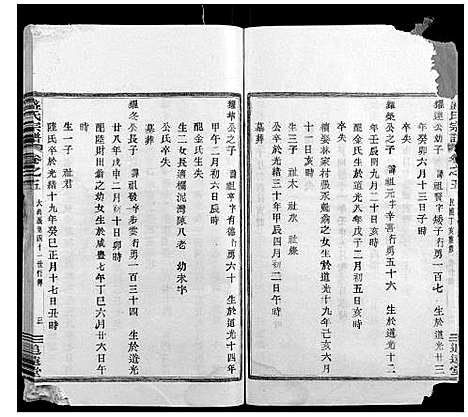 氏宗譜 卷之五
耀遠公之子 諱祖賢字矮子行勇一百七 生於道光廿三
年癸卯六月十三日子時
卒失
耀榮公之子 諱祖元字辛雲行勇五十六 生於道光十二
年壬辰九月二十日亥時
配金氏生於道光八年戊子二月初五日亥時
卒失
續娶林家村 氏生於道光十九年己亥六月
十一日亥時
生三子 社木 社水 社
公卒於光緒三十年甲辰六月初三日亥時
墓葬
耀華公之子 諱祖亨字有德行勇六十 生於道光十四年
甲午二月初六日辰時
配金氏生失
生二女長適 泥灣陳八老 幼未字
公氏卒失
墓葬
耀冬公長子 諱祖發字多雲行勇一百三十四 生於道光
廿八年戊申二月初十日卯時
配陸財田翁之幼女生於咸豐七年丁巳六月廿六日午
時
生一子 社君
陸氏卒於光緒十九年癸巳正月十七日丑時
氏宗譜 卷之五
三
追遠堂